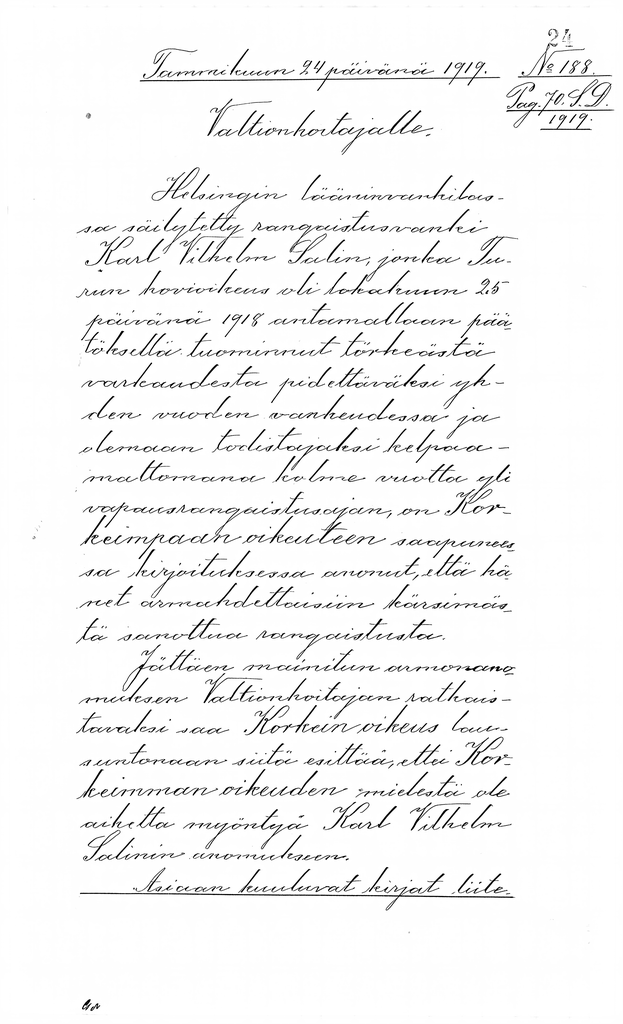 24
Tammikuun 24 päivänä 1919.
№ 188.
Pag. 70. S. D.
1919.
Valtionhoitajalle.
Helsingin lääninvankilas-
sa säilytetty rangaistusvanki
Karl Vilhelm Salin, jonka Tu-
run hovioikeus oli lokakuun 25
päivänä 1918 antamallaan pää-
töksellä tuominnut törkeästä
varkaudesta pidettäväksi yh-
den vuoden vankeudessa ja
olemaan todistajaksi kelpaa-
mattomana kolme vuotta yli
vapausrangaistusajan, on Kor-
keimpaan oikeuteen saapunees-
sa kirjoituksessa anonut, että hä-
net armahdettaisiin kärsimäs-
tä sanottua rangaistusta.
Jättäen mainitun armonano-
muksen Valtionhoitajan ratkais-
tavaksi saa Korkein oikeus lau-
suntonaan siitä esittää, että Kor-
keimman oikeuden mielestä ole
aihetta myöntyä Karl Vilhelm
Salinin anomukseen.
Asiaan kuuluvat kirjat liite-